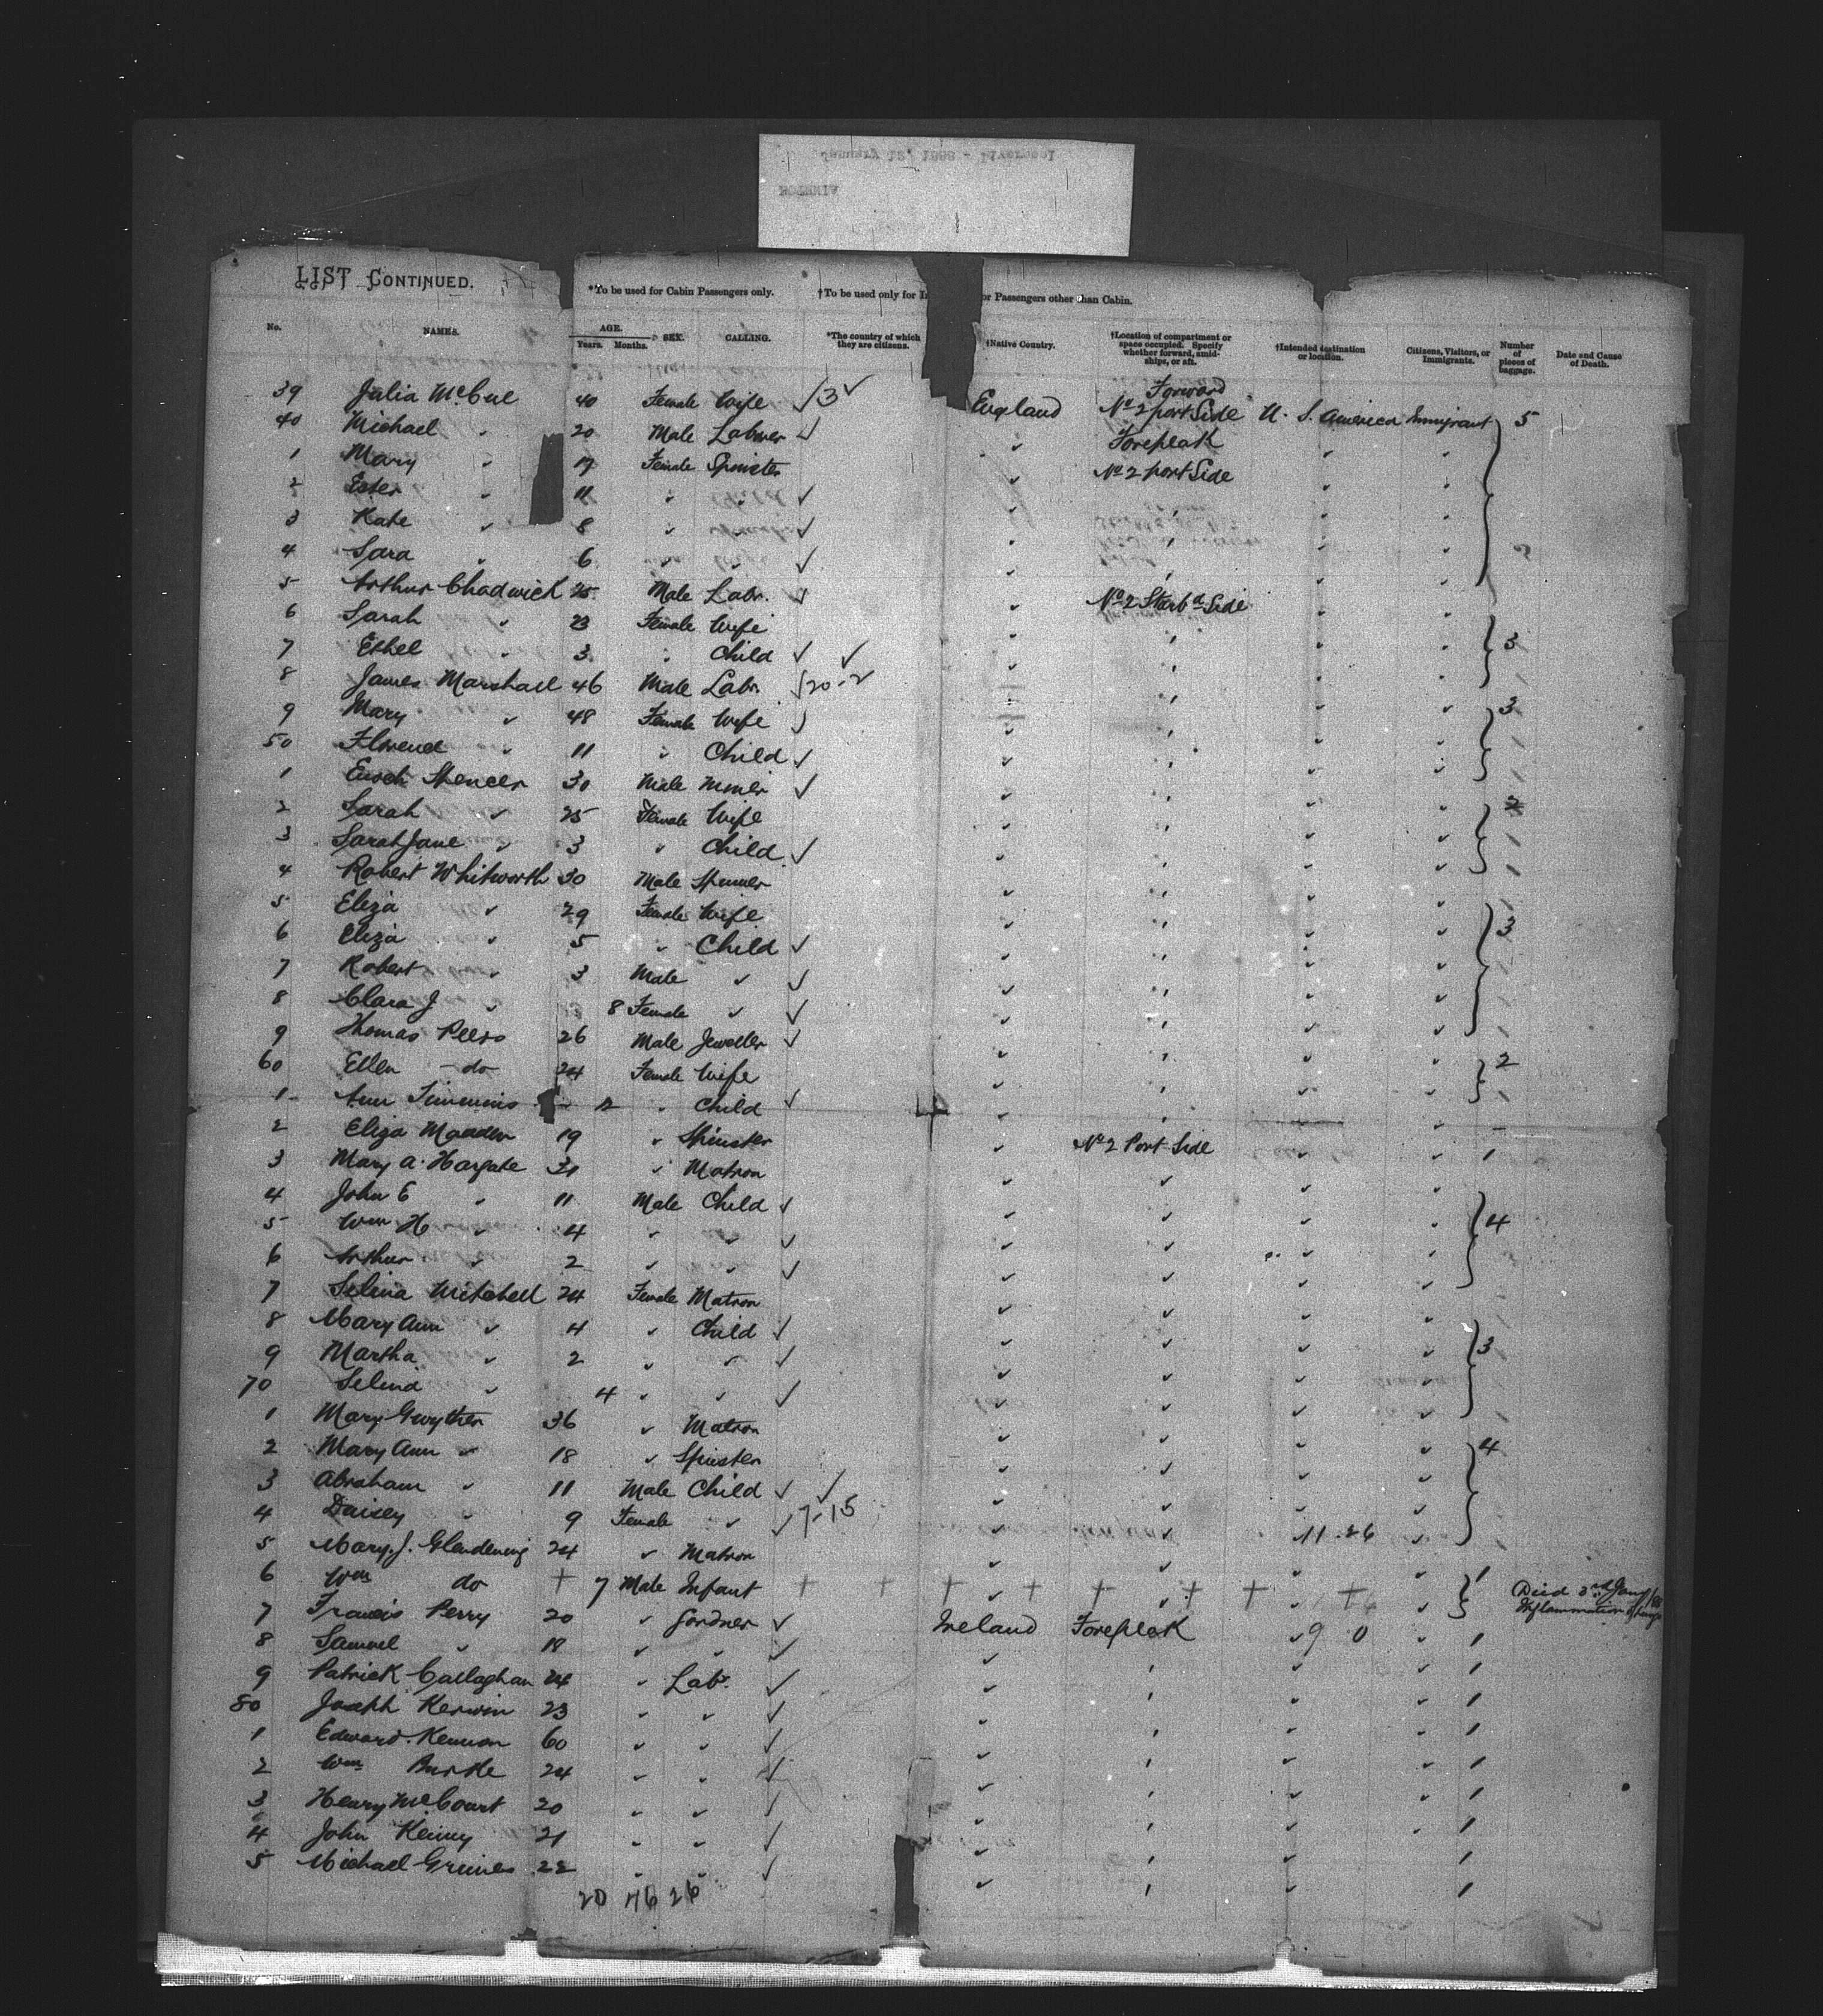 LIST CONTINUED.
*To be used for Cabin Passengers only. †To be used only for or Passengers other than Cabin.
No. NAMES. AGE. Years. Months. SEX. CALLING. *The country of which they are citizens. †Native Country. †Location of compartment or space occupied. Specify whether forward, amidships, or aft. †Intended destination or location. Citizens, Visitors, or Immigrants. Number of pieces of baggage. Date and Cause of Death.
39 Julia McCue 40 Female Wife 3 England Forward No 2 port Side U. S. America Immigrant 5
40 Michael " 20 Male Labourer " Forepeak " "
1 Mary " 19 Female Spinster " No 2 port Side " "
2 Ester " 11 " " " " "
3 Kate " 8 " " " " "
4 Sara " 6 " " " " " "
5 Arthur Chadwick 25 Male Labr. " No 2 Starbd Side " "
6 Sarah " 23 Female Wife " " " " 3
7 Ethel " 3 " Child " " " "
8 James Marshall 46 Male Labr. 20-2 " " " "
9 Mary " 48 Female Wife " " " " 3
50 Florence " 11 " Child " " " "
1 Enoch Spencer 30 Male Miner " " " "
2 Sarah " 25 Female Wife " " " " 2
3 Sarah Jane " 3 " Child " " " "
4 Robert Whitworth 30 Male Spinner " " " "
5 Eliza " 29 Female Wife " " " " 3
6 Eliza " 5 " Child " " " "
7 Robert " 3 Male " " " " "
8 Clara J " 8 Female " " " " "
9 Thomas Peers 26 Male Jeweller " " " "
60 Ellen - do - 24 Female Wife " " " " 2
1 Ann Timmins " Child " " " "
2 Eliza 19 " Spinster " No 2 Port Side " " 1
3 Mary A. Hargate 31 " Matron " " " "
4 John E " 11 Male Child " " " " 4
5 Wm H " 4 " " " " " "
6 Arthur " 2 " " " " " "
7 Selina Mitchell 24 Female Matron " " " "
8 Mary Ann " 4 " Child " " " " 3
9 Martha " 2 " " " " " "
70 Selina " 4 " " " " " "
1 Mary Gwyther 36 " Matron " " " "
2 Mary Ann " 18 " Spinster " " " " 4
3 Abraham " 11 Male Child " " " "
4 Daisey " 9 Female " 7-15 " " 11-26 "
5 Mary. J. Glendening 24 " Matron " " " " 1
6 Wm do + 7 Male Infant + + + + + + + + " " " " Died 3rd Jany/88 Inflammation of lungs
7 Francis Perry 20 " Gardner Ireland Foreplak 9 0 " 1
8 Samuel " 18 " " " " " " 1
9 Patrick Callaghan 24 " Labr. " " " " 1
80 Joseph Kerwin 23 " " " " " " 1
1 Edward Kennon 60 " " " " " " 1
2 Wm Burke 24 " " " " " " 1
3 Henry McCourt 20 " " " " " " 1
4 John Kenny 21 " " " " " 1
5 Michael Grimes 22 " " " " " 1
20 46 26